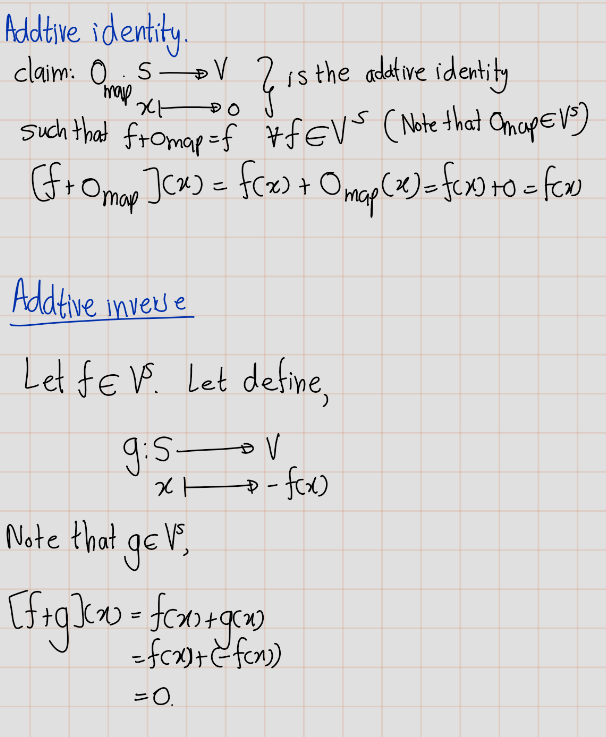 Addtive identity.
claim: 0map : S → V } is the addtive identity
x ↦ 0
such that f+0map = f ∀f ∈ V^S (Note that 0map ∈ V^S)
[f+0map](x) = f(x) + 0map(x) = f(x)+0 = f(x)
Addtive inverse
Let f ∈ V^S. Let define,
g: S → V
x ↦ - f(x)
Note that g ∈ V^S,
[f+g](x) = f(x)+g(x)
= f(x)+(-f(x))
= 0.